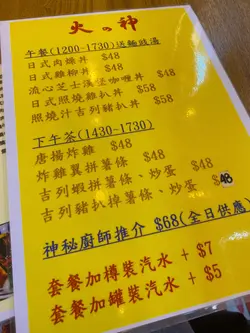 火の神
午餐(1200-1730)送麵豉湯
日式肉燥丼 $48
日式雞柳丼 $48
流心芝士漢堡咖喱丼 $48
日式照燒雞扒丼 $58
照燒汁吉列豬扒丼 $58
下午茶(1430-1730)
唐揚炸雞 $48
炸雞翼拼薯條 $48
吉列蝦拼薯條、炒蛋 $48
吉列豬扒掉薯條、炒蛋 $48
神秘廚師推介 $68(全日供應)
套餐加樽裝汽水 + $7
套餐加罐裝汽水 + $5